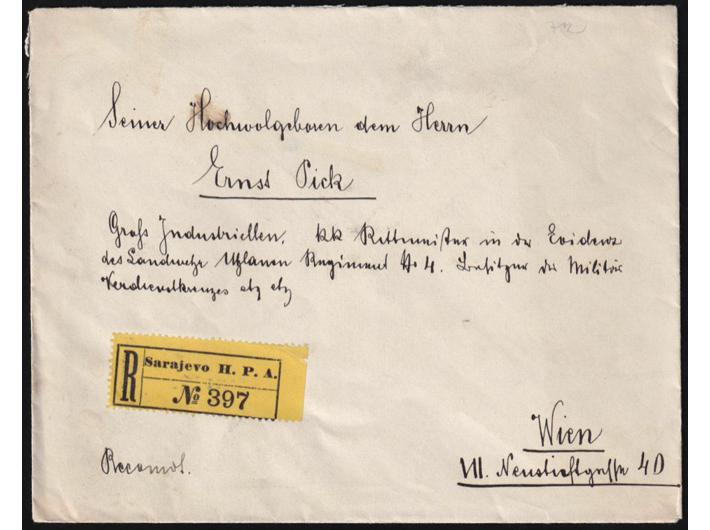 Seiner Hochwolgeboren dem Herrn
Ernst Pick
Groß Industriellen, kk Rittmeister in der Evidenz
des Landwehr Uhlanen Regiment No 4. Besitzer des Militär
Verdienstkreuzes etz etz
R Sarajevo H. P. A.
№ 397
Wien
VII. Neustiftgasse 40
Recomdt.